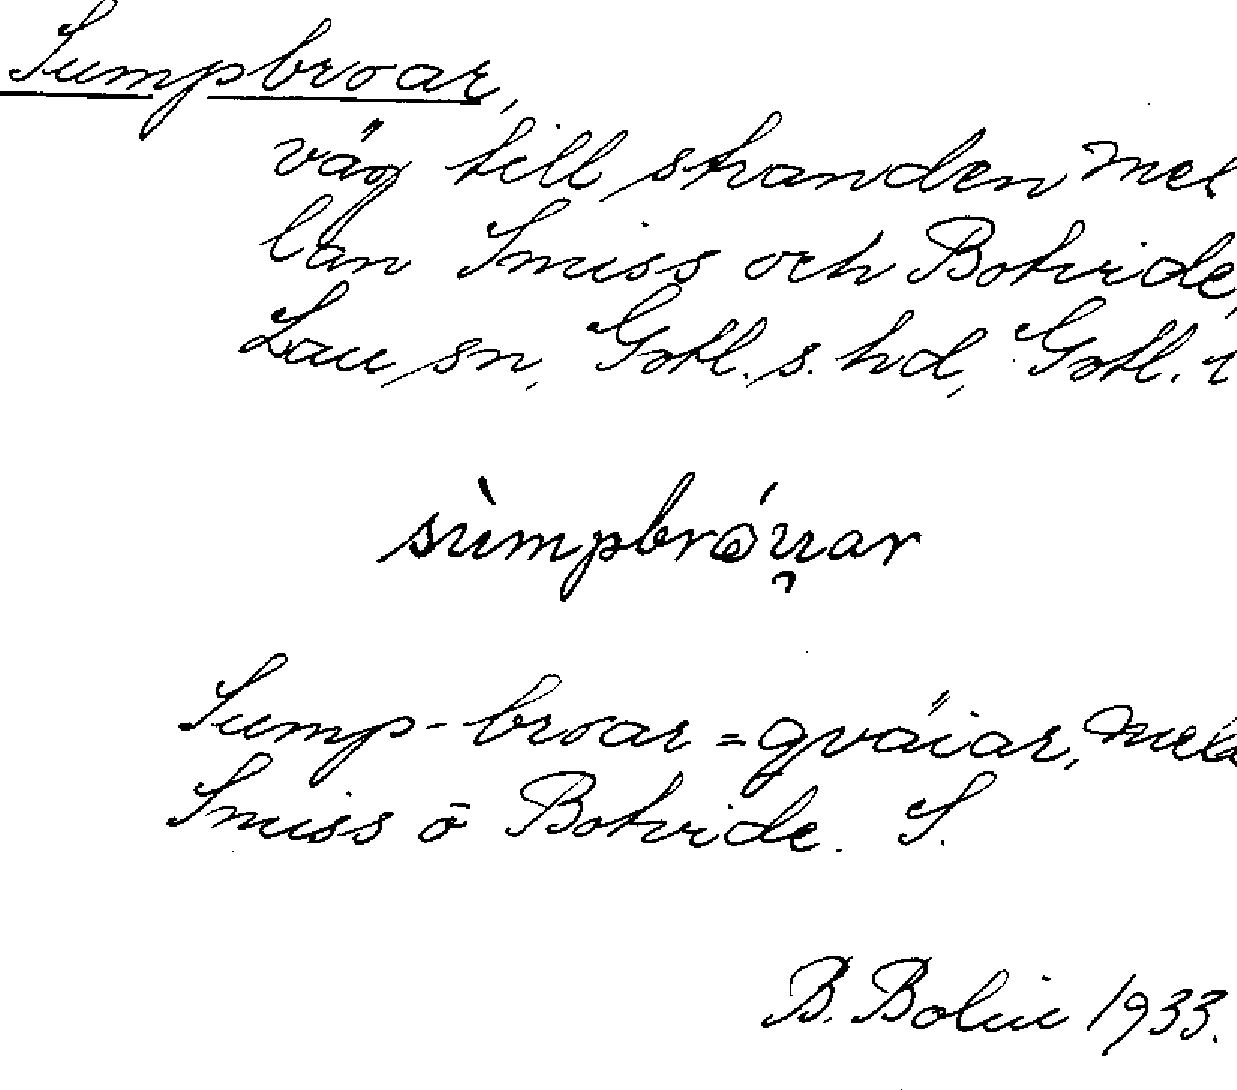 Sumpbroar,
väg till stranden mel
lan Smiss och Botvide,
Lau sn, Gotl. s. hd, Gotl. l
sùmpbróu̯ar
Sump-broar = gváiar, mela
Smiss o Botvide. S.
B. Bolin 1933.